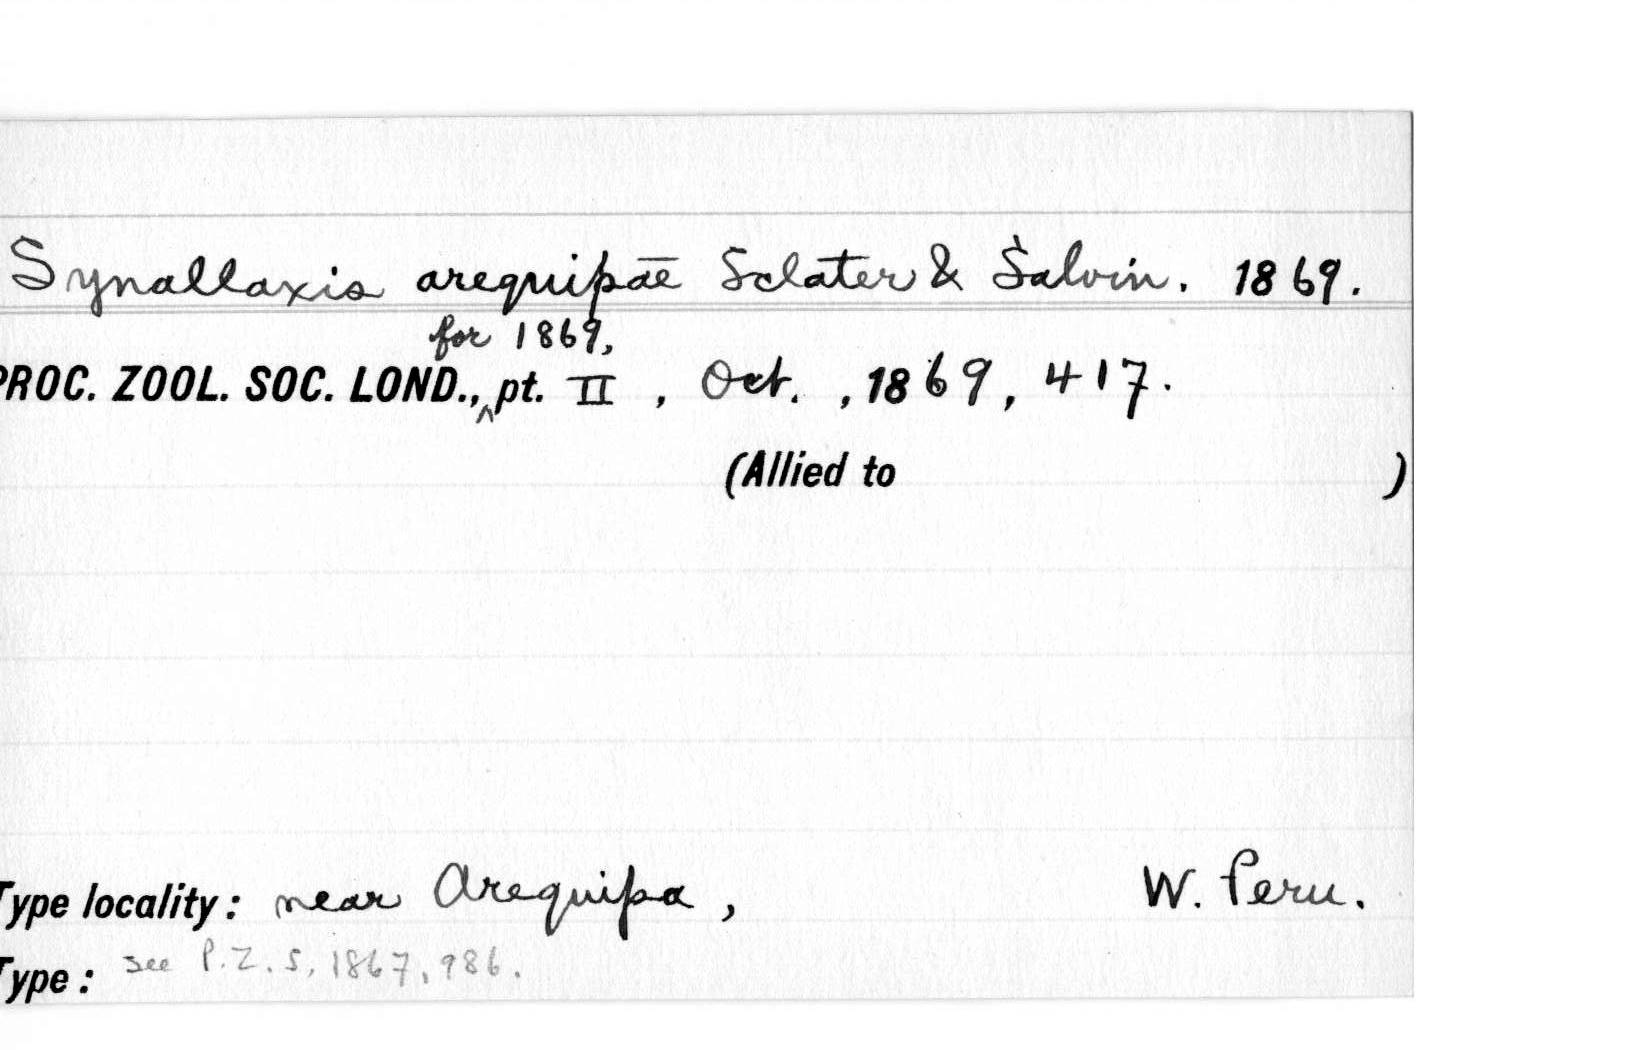 Synallaxis arequipae Sclater & Salvin. 1869.
for 1869,
PROC. ZOOL. SOC. LOND., ^ pt. II , Oct. , 1869, 417.
(Allied to )
Type locality: near Arequipa, W. Peru.
Type: see P.Z.S, 1867, 986.